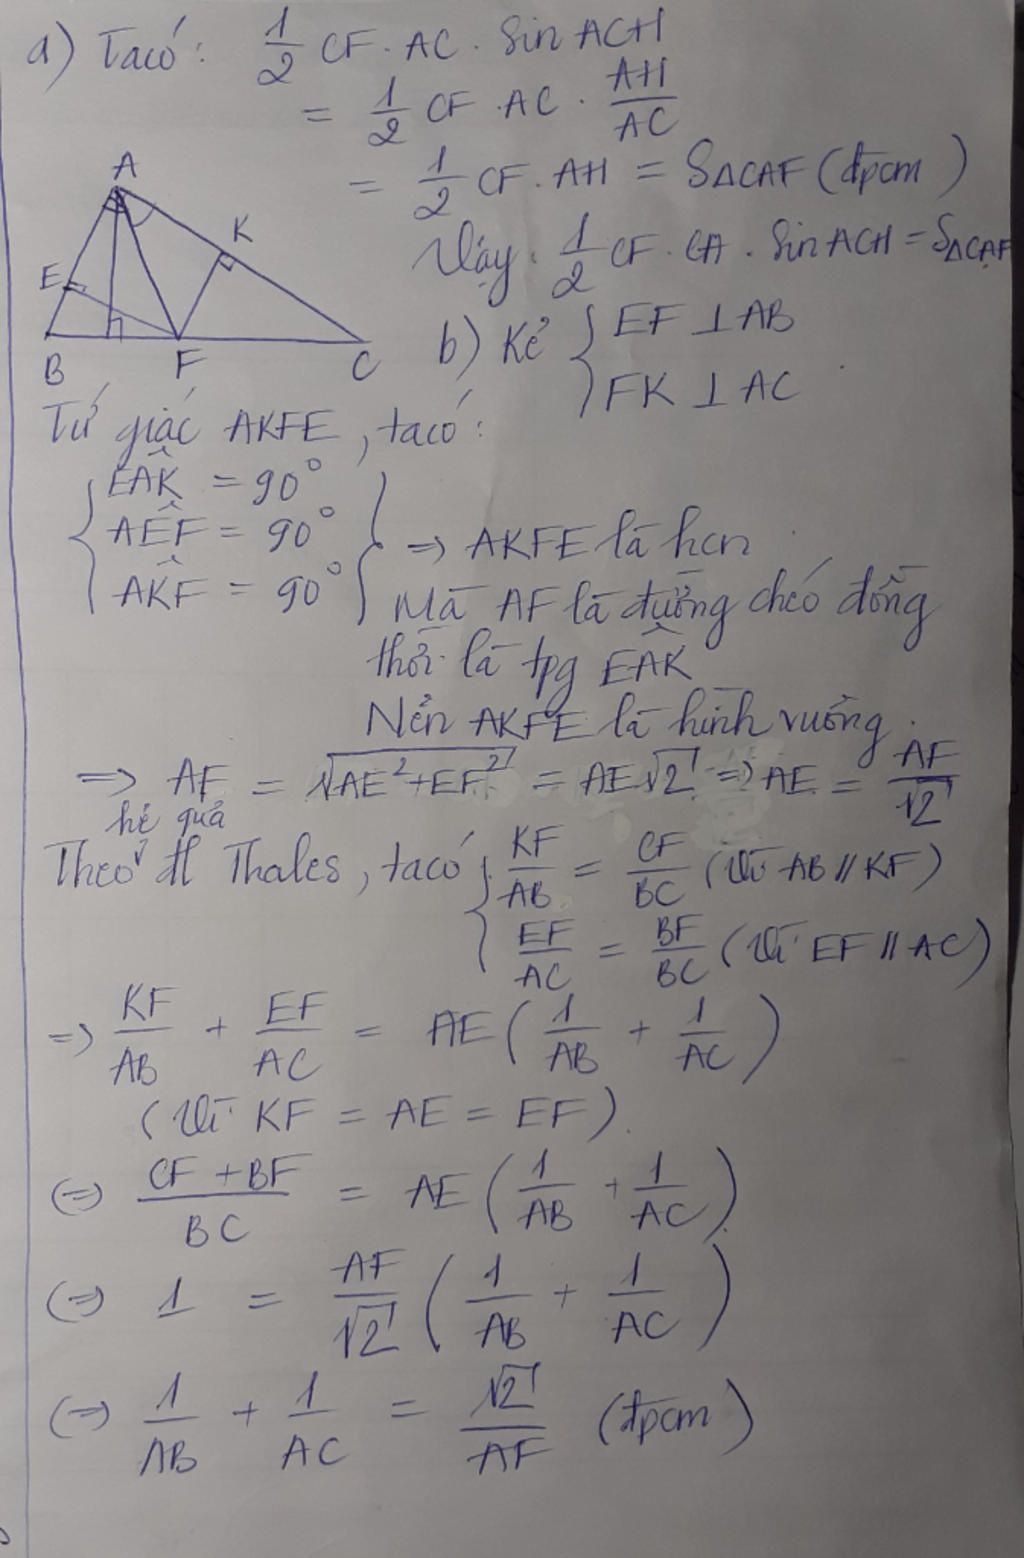 a) Ta có: 1/2 CF · AC · Sin ACH
= 1/2 CF · AC · AH/AC
= 1/2 CF · AH = S△CAF (đpcm)
Vậy 1/2 CF · CA · Sin ACH = S△CAF
A
K
E
B
F
C
b) Kẻ { EF ⊥ AB
FK ⊥ AC
Tứ giác AKFE, ta có:
{ EÂK = 90°
AÊF = 90°
AK̂F = 90° } => AKFE là hcn
Mà AF là đường chéo đồng
thời là tpg EÂK
Nên AKFE là hình vuông.
=> AF = √(AE² + EF²) = AE√2 => AE = AF/√2
hệ quả
Theo đl Thales, ta có { KF/AB = CF/BC (Vì AB // KF)
EF/AC = BF/BC (Vì EF // AC)
=> KF/AB + EF/AC = AE(1/AB + 1/AC)
(Vì KF = AE = EF).
(=) (CF + BF)/BC = AE(1/AB + 1/AC)
(=) 1 = AF/√2 (1/AB + 1/AC)
(=) 1/AB + 1/AC = √2/AF (đpcm)